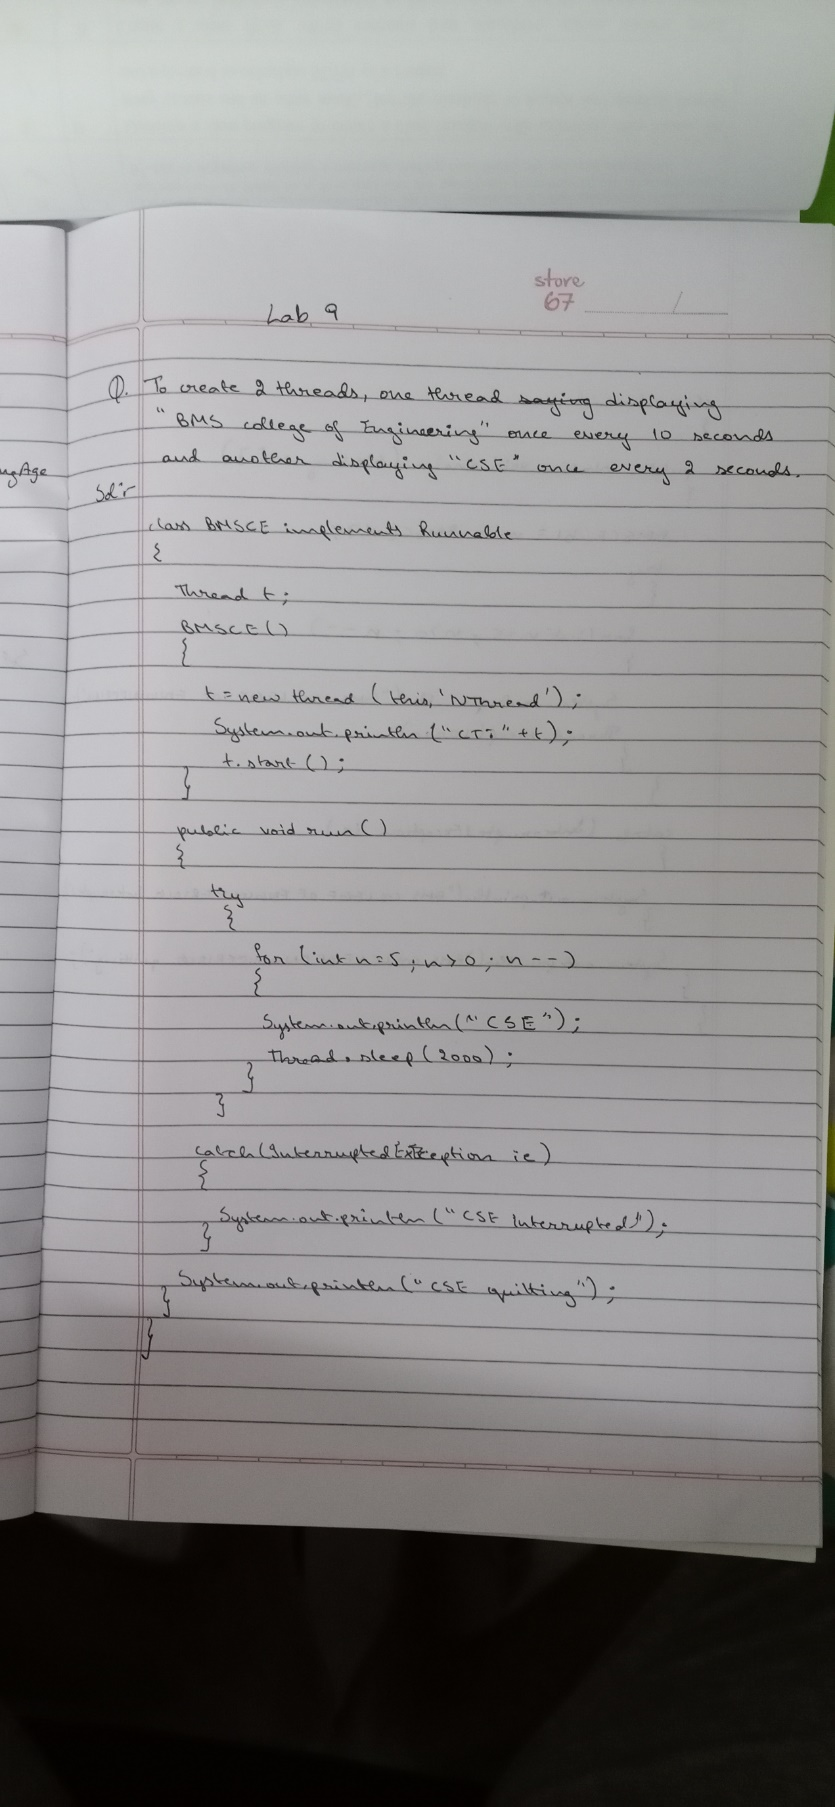 store
67
Lab 9
Q. To create 2 threads, one thread saying displaying
"BMS college of Engineering" once every 10 seconds
and another displaying "CSE" once every 2 seconds.
ngAge
Solⁿ
class BMSCE implements Runnable
{
Thread t;
BMSCE()
{
t = new thread (this, 'NThread');
System.out.println ("CT: " + t);
t.start ();
}
public void run()
{
try
{
for (int n=5; n>0; n--)
{
System.out.println("CSE");
Thread.sleep(2000);
}
}
catch(InterruptedException ie)
{
System.out.println("CSE Interrupted");
}
System.out.println("CSE quitting");
}
}